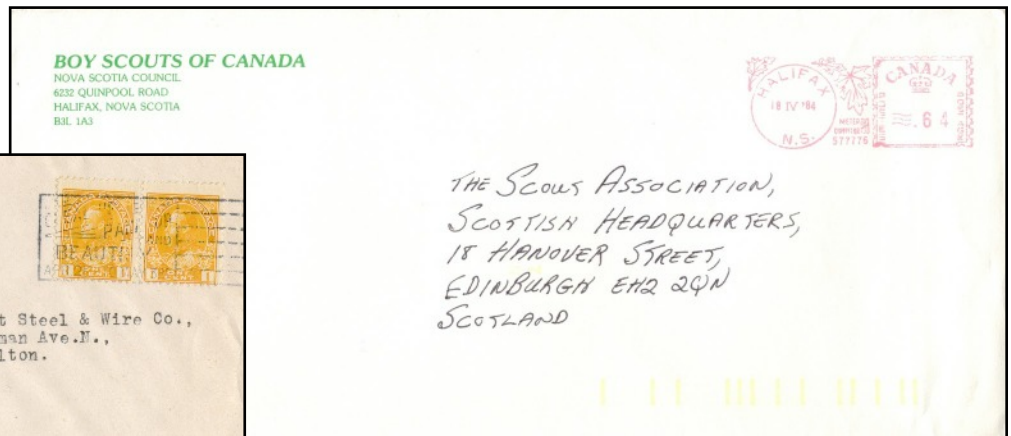 BOY SCOUTS OF CANADA
NOVA SCOTIA COUNCIL
6232 QUINPOOL ROAD
HALIFAX, NOVA SCOTIA
B3L 1A3
HALIFAX
18 IV '84
N.S.
METER
577776
CANADA
.64
THE SCOUT ASSOCIATION,
SCOTTISH HEADQUARTERS,
18 HANOVER STREET,
EDINBURGH EH2 2QN
SCOTLAND
BEAUTIFY
t Steel & Wire Co.,
man Ave.N.,
lton.